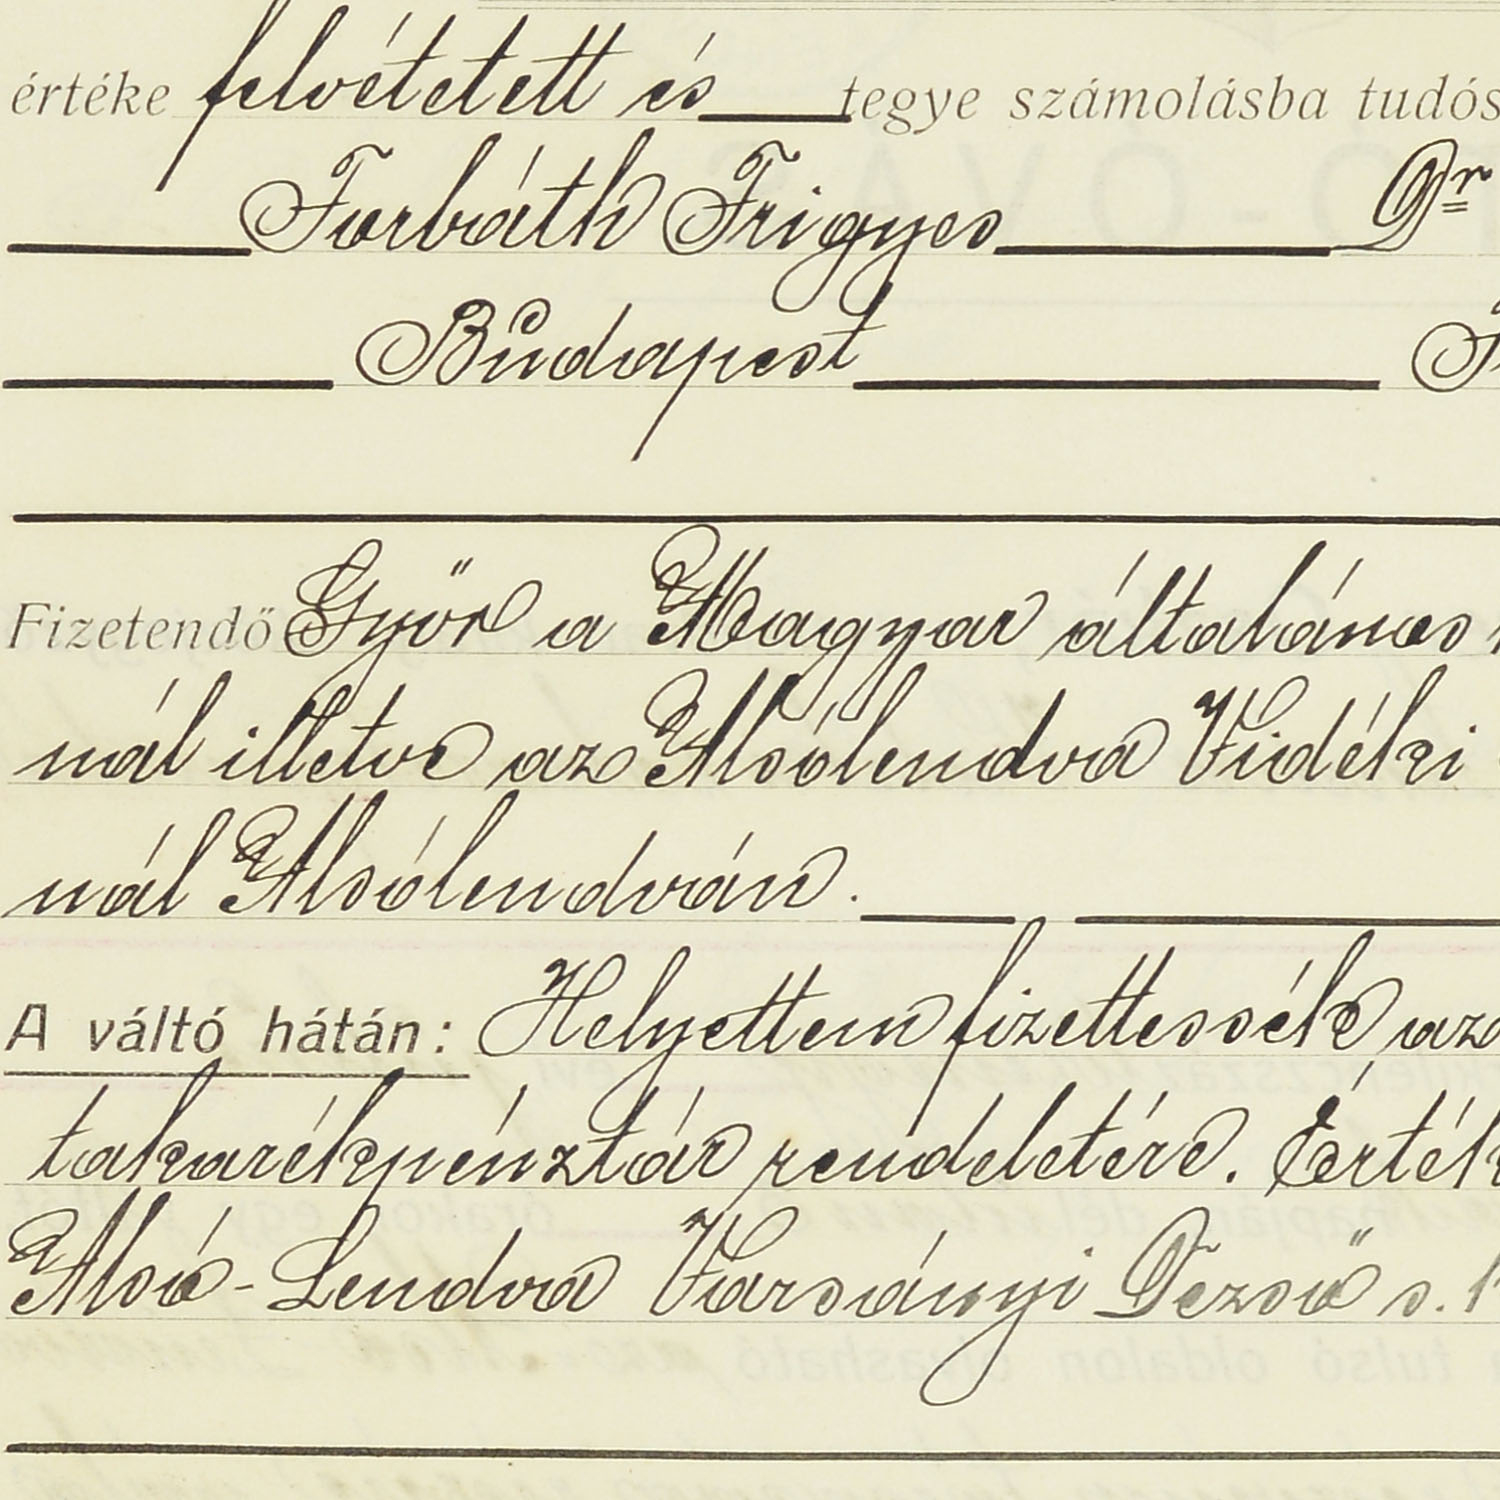 értéke felvétetett és tegye számolásba tudós
Forbáth Frigyes Dr
Budapest
Fizetendő Győr a Magyar általános
nál illetve az Alsólendva Vidéki
nál Alsólendván.
A váltó hátán: Helyettem fizettessék az
takarékpénztár rendeletére. Érték
Alsó-Lendva Varsányi Dezső s. k